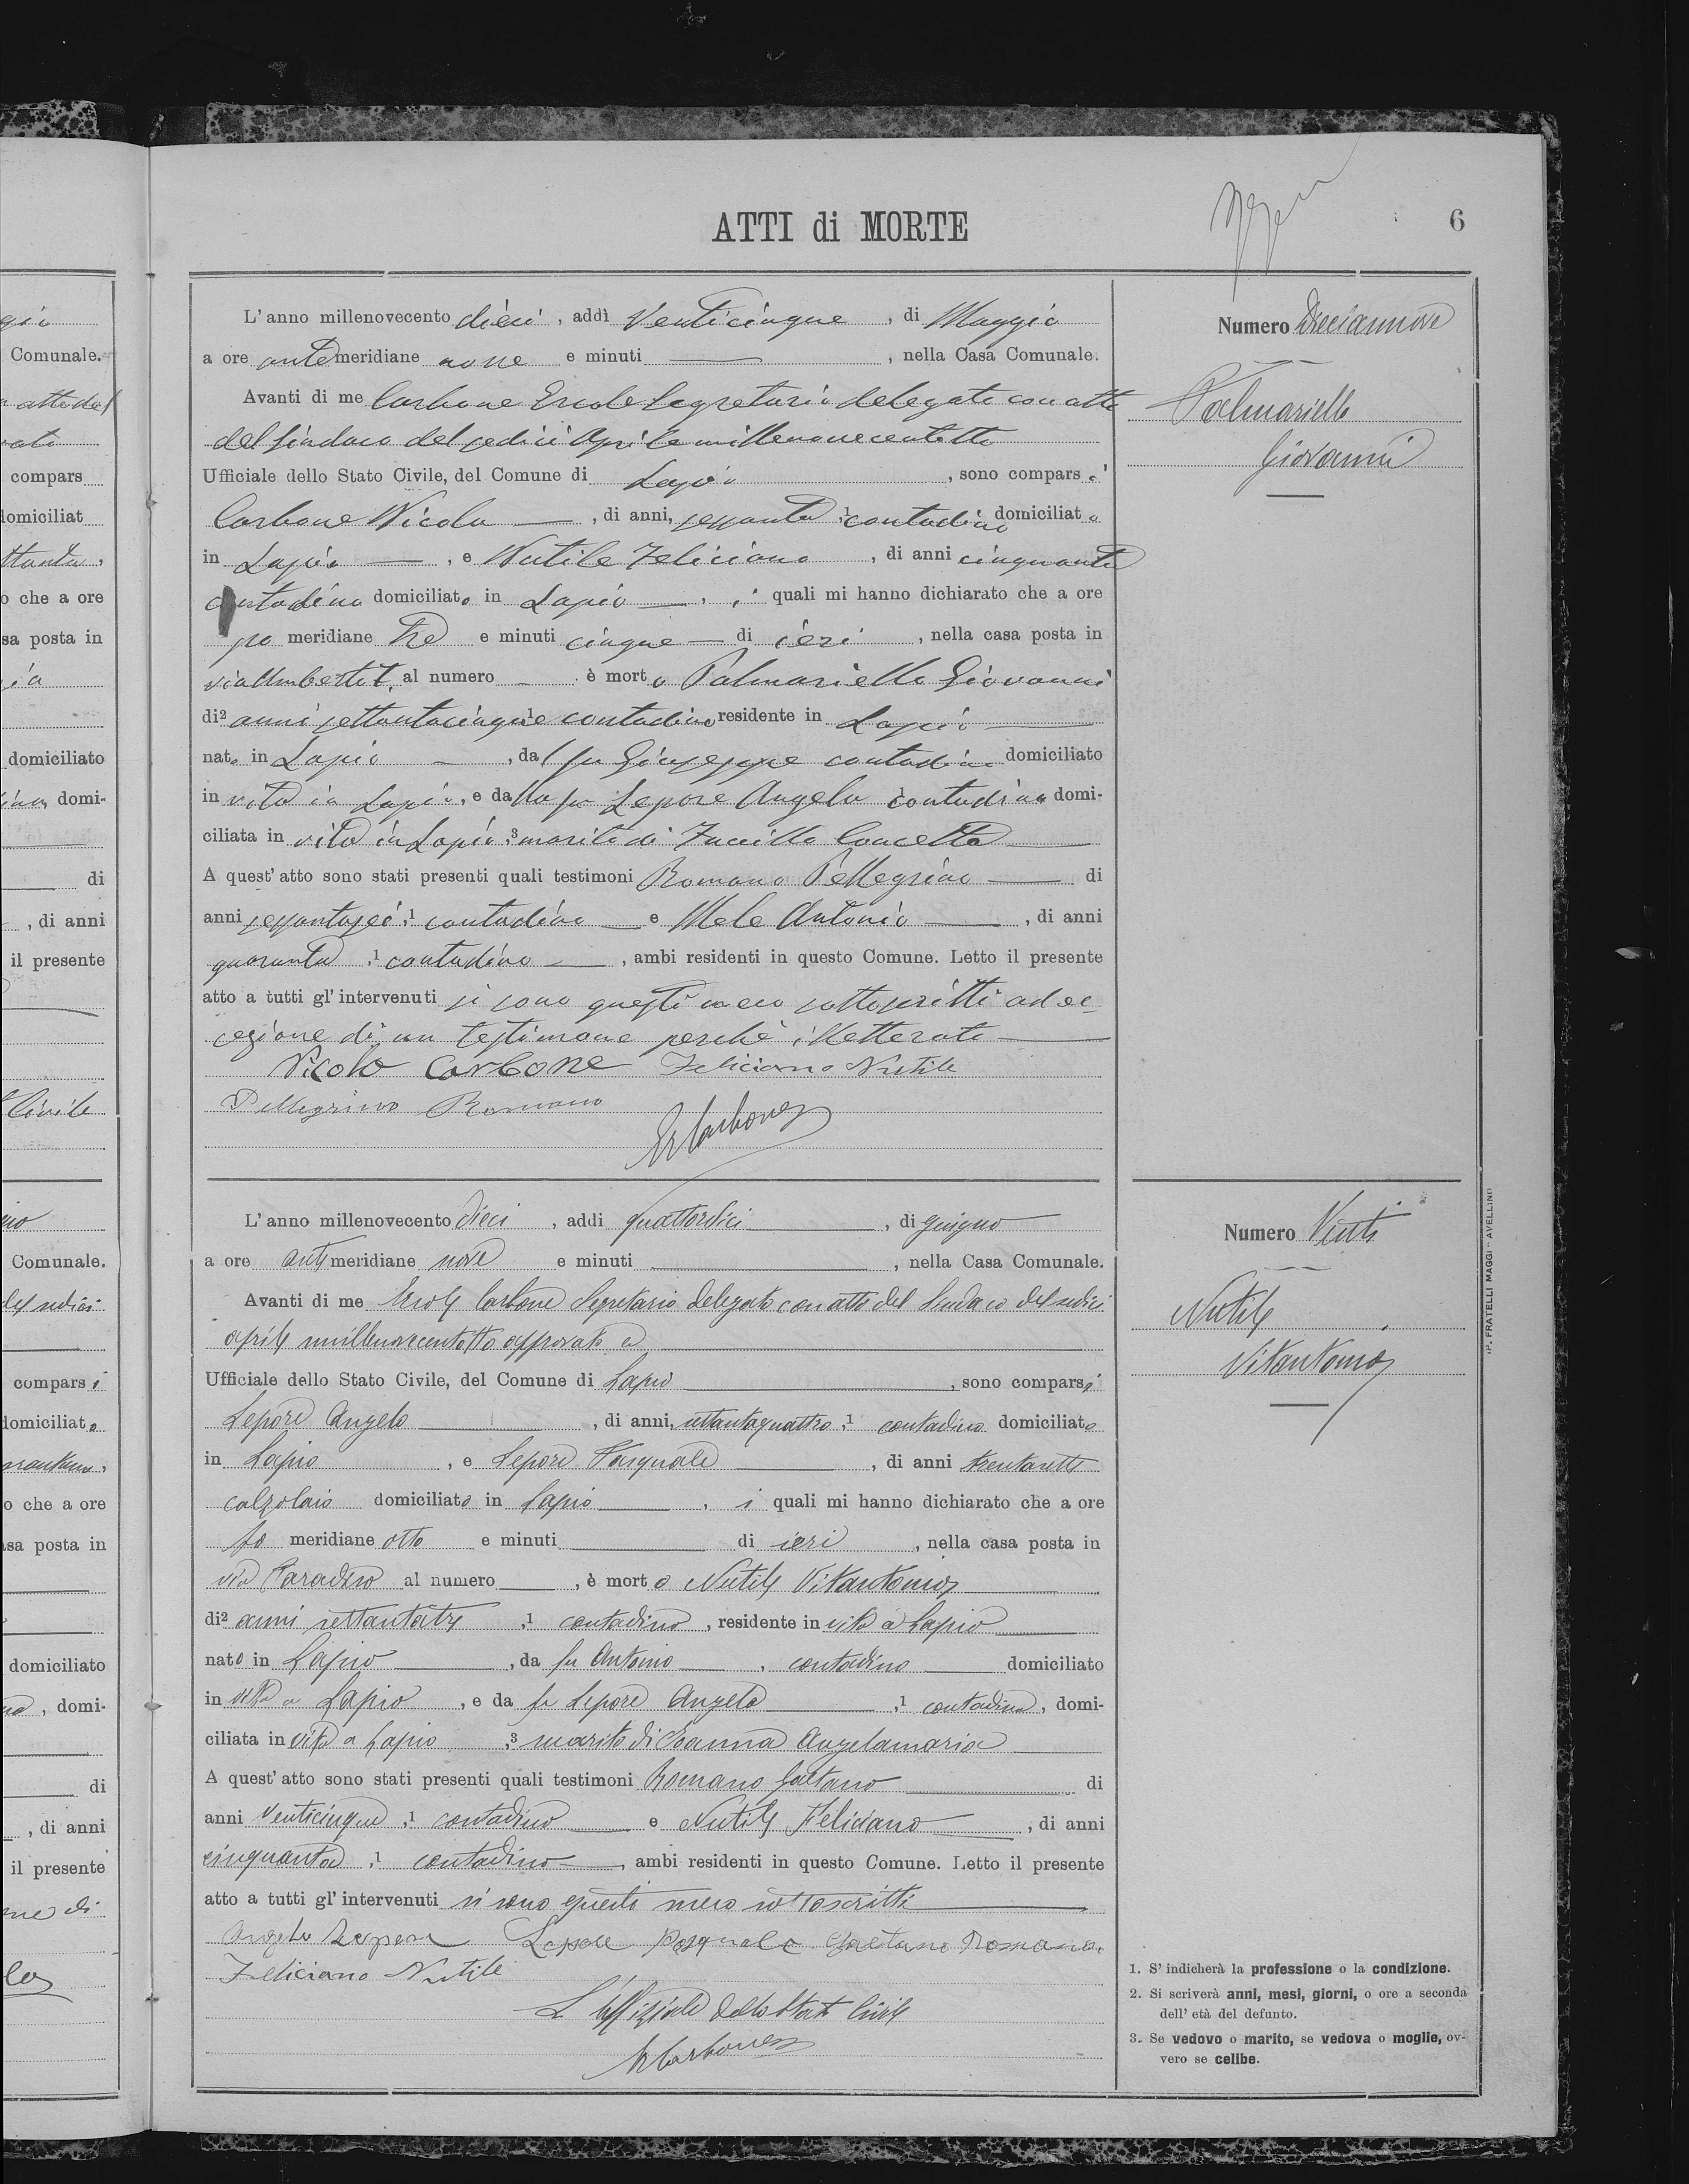 gio
Comunale.
atto del
compars
domiciliat
ttanta,
o che a ore
sa posta in
domiciliato
domi-
di
, di anni
il presente
Civile
Comunale.
del sedici
compars i
domiciliato
o che a ore
asa posta in
domiciliato
, domi-
di
, di anni
il presente
me di
ATTI di MORTE
6
L'anno millenovecento dieci, addì Venticinque, di Maggio
a ore antemeridiane nove e minuti —, nella Casa Comunale.
Avanti di me Carbone Ercole Segretario delegato con atto
del Sindaco del sedici Aprile millenovecentotto
Ufficiale dello Stato Civile, del Comune di Lapio, sono comparsi
Carbone Nicola —, di anni, sessanta,1 contadino domiciliato
in Lapio —, e Nutile Feliciano, di anni cinquanta
contadino domiciliato in Lapio —, i quali mi hanno dichiarato che a ore
po meridiane tre e minuti cinque — di ieri, nella casa posta in
via Umberto I, al numero — è morto Palmariello Giovanni
di2 anni settantacinque1 contadino residente in Lapio —
nato in Lapio —, dal fu Giuseppe contadino domiciliato
in vita in Lapio, e dalla fu Lepore Angela contadina domi-
ciliata in vita in Lapio,3 marito di Zuccillo Concetta —
A quest'atto sono stati presenti quali testimoni Romano Pellegrino — di
anni sessantasei,1 contadino — e Mele Antonio —, di anni
quaranta,1 contadino —, ambi residenti in questo Comune. Letto il presente
atto a tutti gl'intervenuti si sono questi meco sottoscritti ad ec-
cezione di un testimone perchè illetterato —
Nicola Carbone Feliciano Nutile
Pellegrino Romano
E. Carbone
Numero Diciannove
Palmariello
Giovanni
L'anno millenovecento dieci, addì quattordici —, di giugno
a ore antimeridiane nove e minuti —, nella Casa Comunale.
Avanti di me Ercole Carbone Segretario delegato con atto del Sindaco del sedici
aprile millenovecentotto approvato e —
Ufficiale dello Stato Civile, del Comune di Lapio —, sono comparsi
Lepore Angelo —, di anni, settantaquattro,1 contadino domiciliato
in Lapio, e Lepore Pasquale —, di anni trentasette
calzolaio domiciliato in Lapio —, i quali mi hanno dichiarato che a ore
po meridiane otto e minuti — di ieri, nella casa posta in
via Paradiso al numero —, è morto Nutile Vitantonio —
di2 anni settantatre,1 contadino, residente in vita a Lapio —
nato in Lapio —, da fu Antonio —, contadino — domiciliato
in vita a Lapio, e da fu Lepore Angela —,1 contadina, domi-
ciliata in vita a Lapio,3 marito di Angelamaria —
A quest'atto sono stati presenti quali testimoni Romano Gaetano — di
anni venticinque,1 contadino — e Nutile Feliciano —, di anni
cinquanta,1 contadino —, ambi residenti in questo Comune. Letto il presente
atto a tutti gl'intervenuti si sono questi meco sottoscritti —
Angelo Lepore Lepore Pasquale Gaetano Romano
Feliciano Nutile
L'Uffiziale dello Stato Civile
E. Carbone
Numero Venti
Nutile
Vitantonio
1. S'indicherà la professione o la condizione.
2. Si scriverà anni, mesi, giorni, o ore a seconda
dell'età del defunto.
3. Se vedovo o marito, se vedova o moglie, ov-
vero se celibe.
TIP. FRATELLI MAGGI - AVELLINO